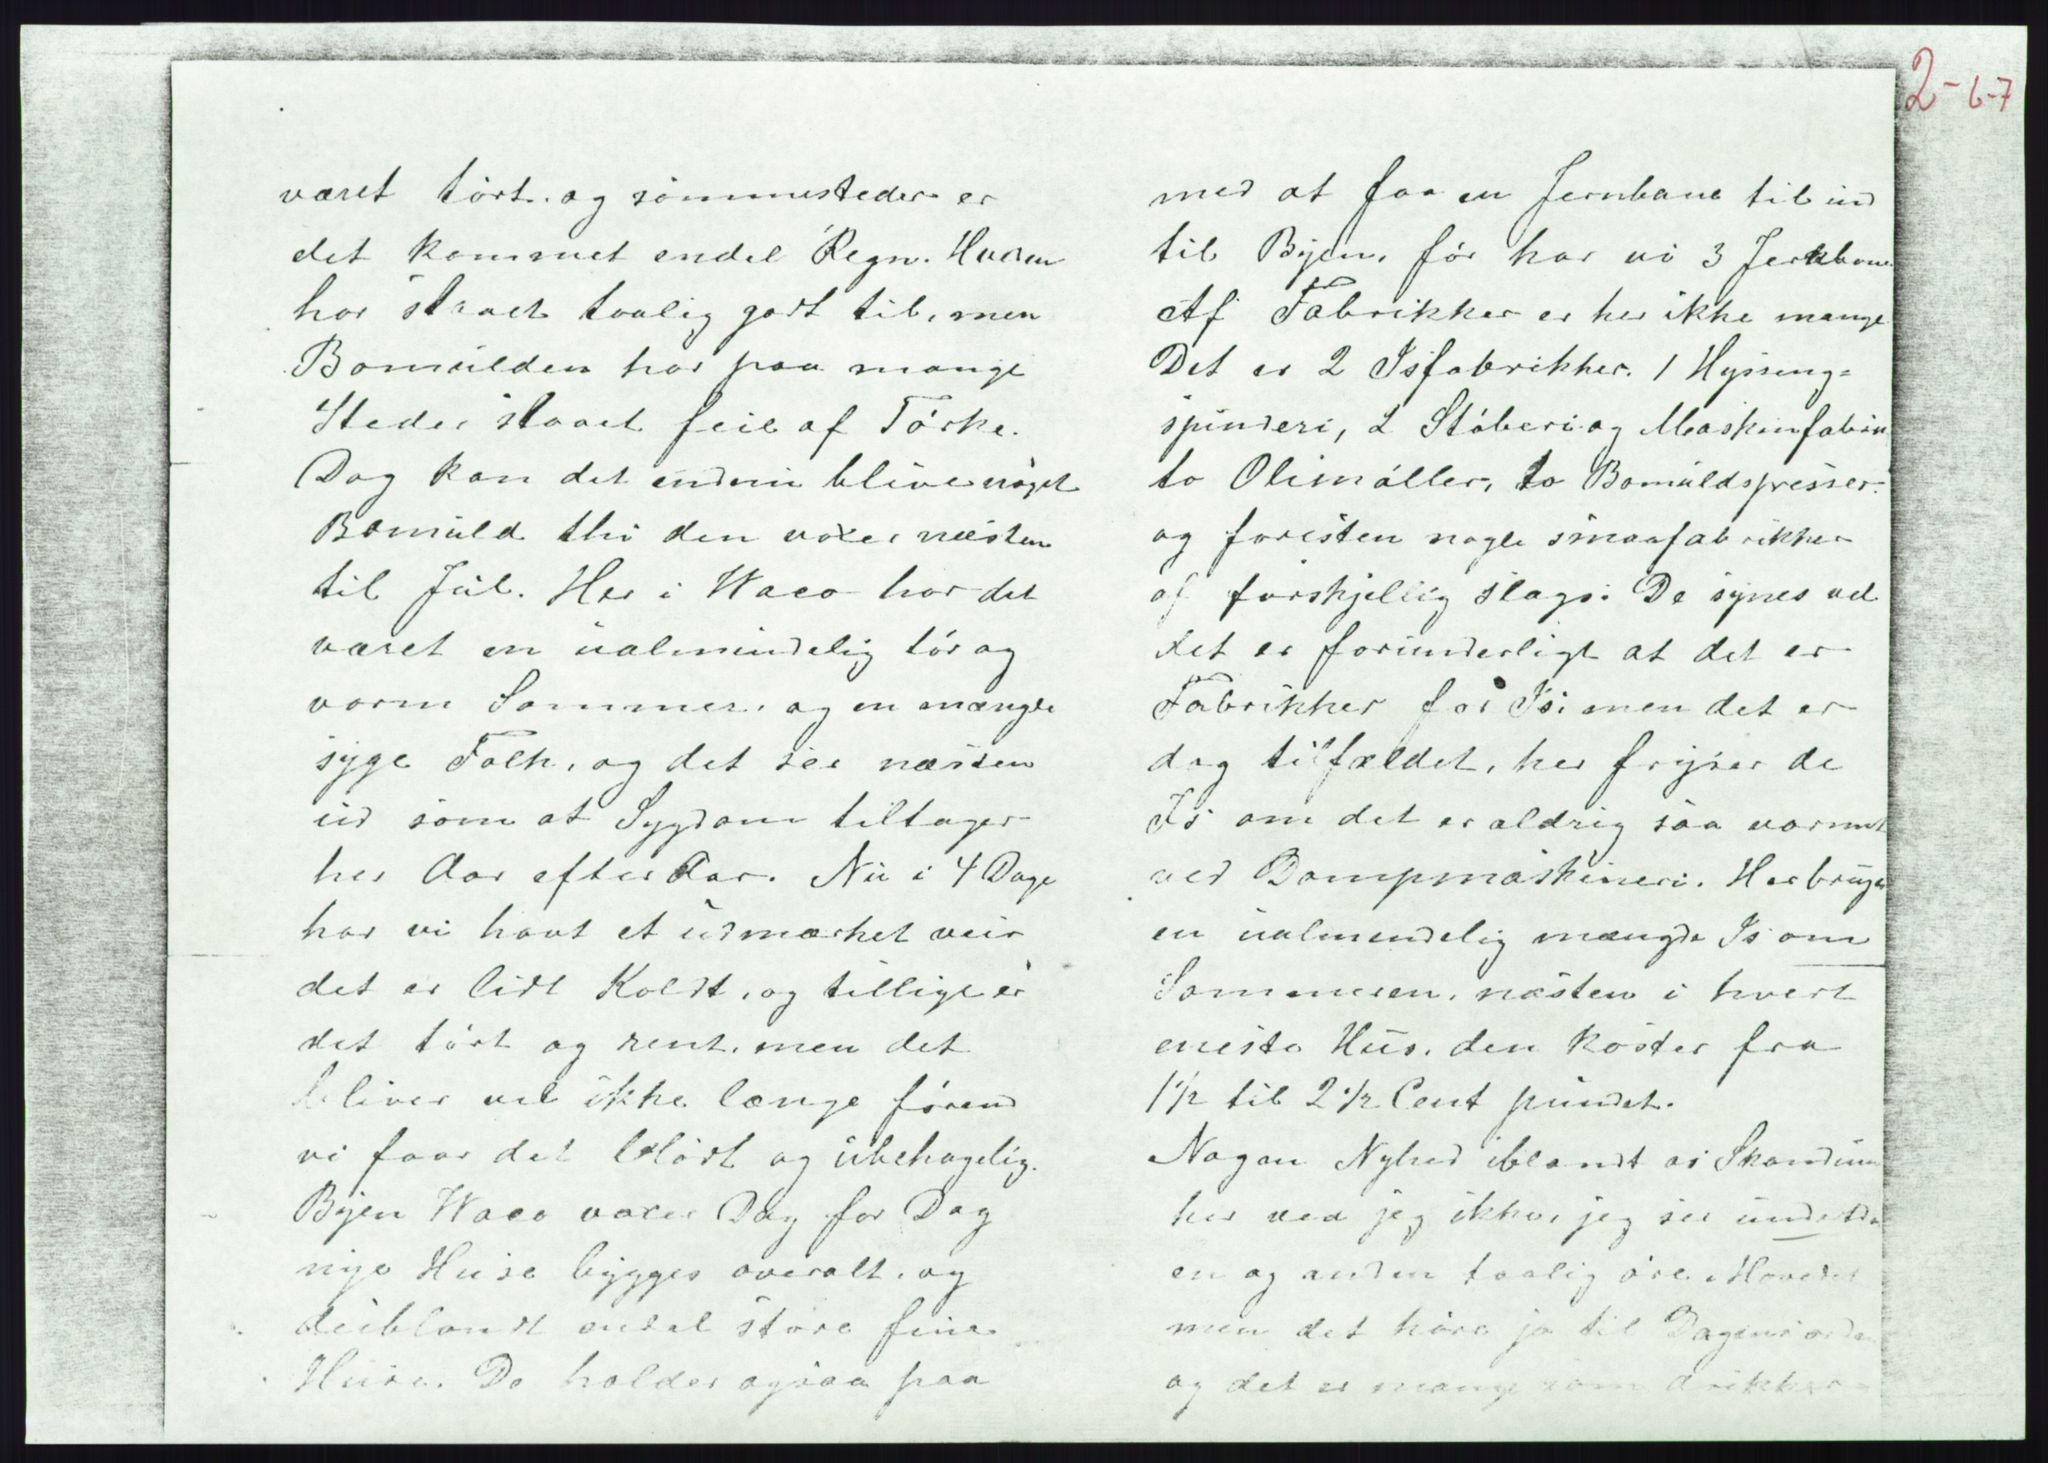 2-6-7
været tört. og sommesteder er
det kommet endel Regn. Hveden
har slaaet taalig godt til, men
Bomulden har paa mange
Steder slaaet feil af Törke.
Dog kan det endnu blive noget
Bomuld thi den voxer næsten
til Jul. Her i Waco har det
været en ualmindelig tör og
varm Sommer. og en mængde
syge Folk, og det ser næsten
ud som at Sygdom tiltager
her Aar efter Aar. Nu i 4 Dage
har vi havt et udmærket veir
det er lidt Koldt, og tillige er
det tört og rent. men det
bliver vel ikke længe förend
vi faar det blödt og ubehagelig.
Byen Waco voxer Dag for Dag
nye Huse bygges overalt. og
deiblandt endel store fine
Huse. De holder ogsaa paa
med at faa en Jernbane til ind
til Byen, för har vi 3 Jernbane
Af Fabrikker er her ikke mange
Det er 2 Isfabrikker. 1 Hysseng=
spinderi, 2 Stöberi og Maskinfabrik
to Olimöller, to Bomuldspresser.
og foresten nogle smaafabrikker
af forskjellig slags. De synes vel
det er forunderligt at det er
Fabrikker for Is, men det er
dog tilfældet, her fryser de
Is om det er aldrig saa varmt
ved Dampmaskineri. Her bruges
en ualmendelig mængde Is om
Sommeren, næsten i hvert
eneste Hus. den koster fra
1 1/2 til 2 1/2 Cent pundet.
Nogen Nyhed iblandt os Skandina
her ved jeg ikke, jeg ser undertd
en og anden taalig öre Hovedet
men det höre jo til Dagens orden
og det er mange som drikker